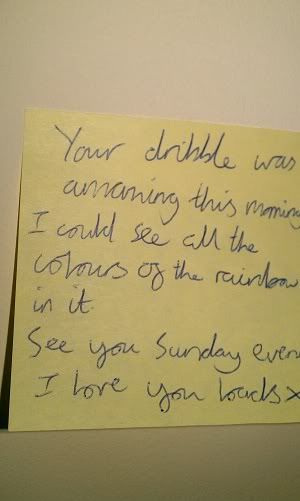 Your dribble was
amaming this morning
I could see all the
colours of the rainbow
in it.
See you Sunday even
I love you loads x